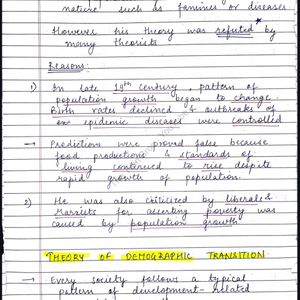 nature such as famines or diseases
However his theory was refuted * by
many theorists
Reasons:
1) In late 19th century, pattern of
population growth began to change.
Birth rates declined & outbreaks of
epidemic diseases were controlled
→ Predictions were proved false because
food productions & standards of
living continued to rise despite
rapid growth of population.
2) He was also criticized by liberals &
Marxists for asserting poverty was
caused by population growth
THEORY OF DEMOGRAPHIC TRANSITION
→ Every society follows a typical
pattern of development-related